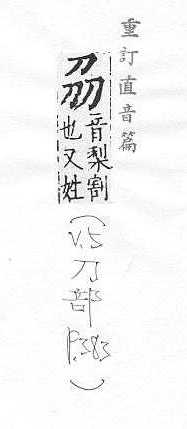 重訂直音篇
刕
音梨割
也又姓
(V.5刀部P.383)